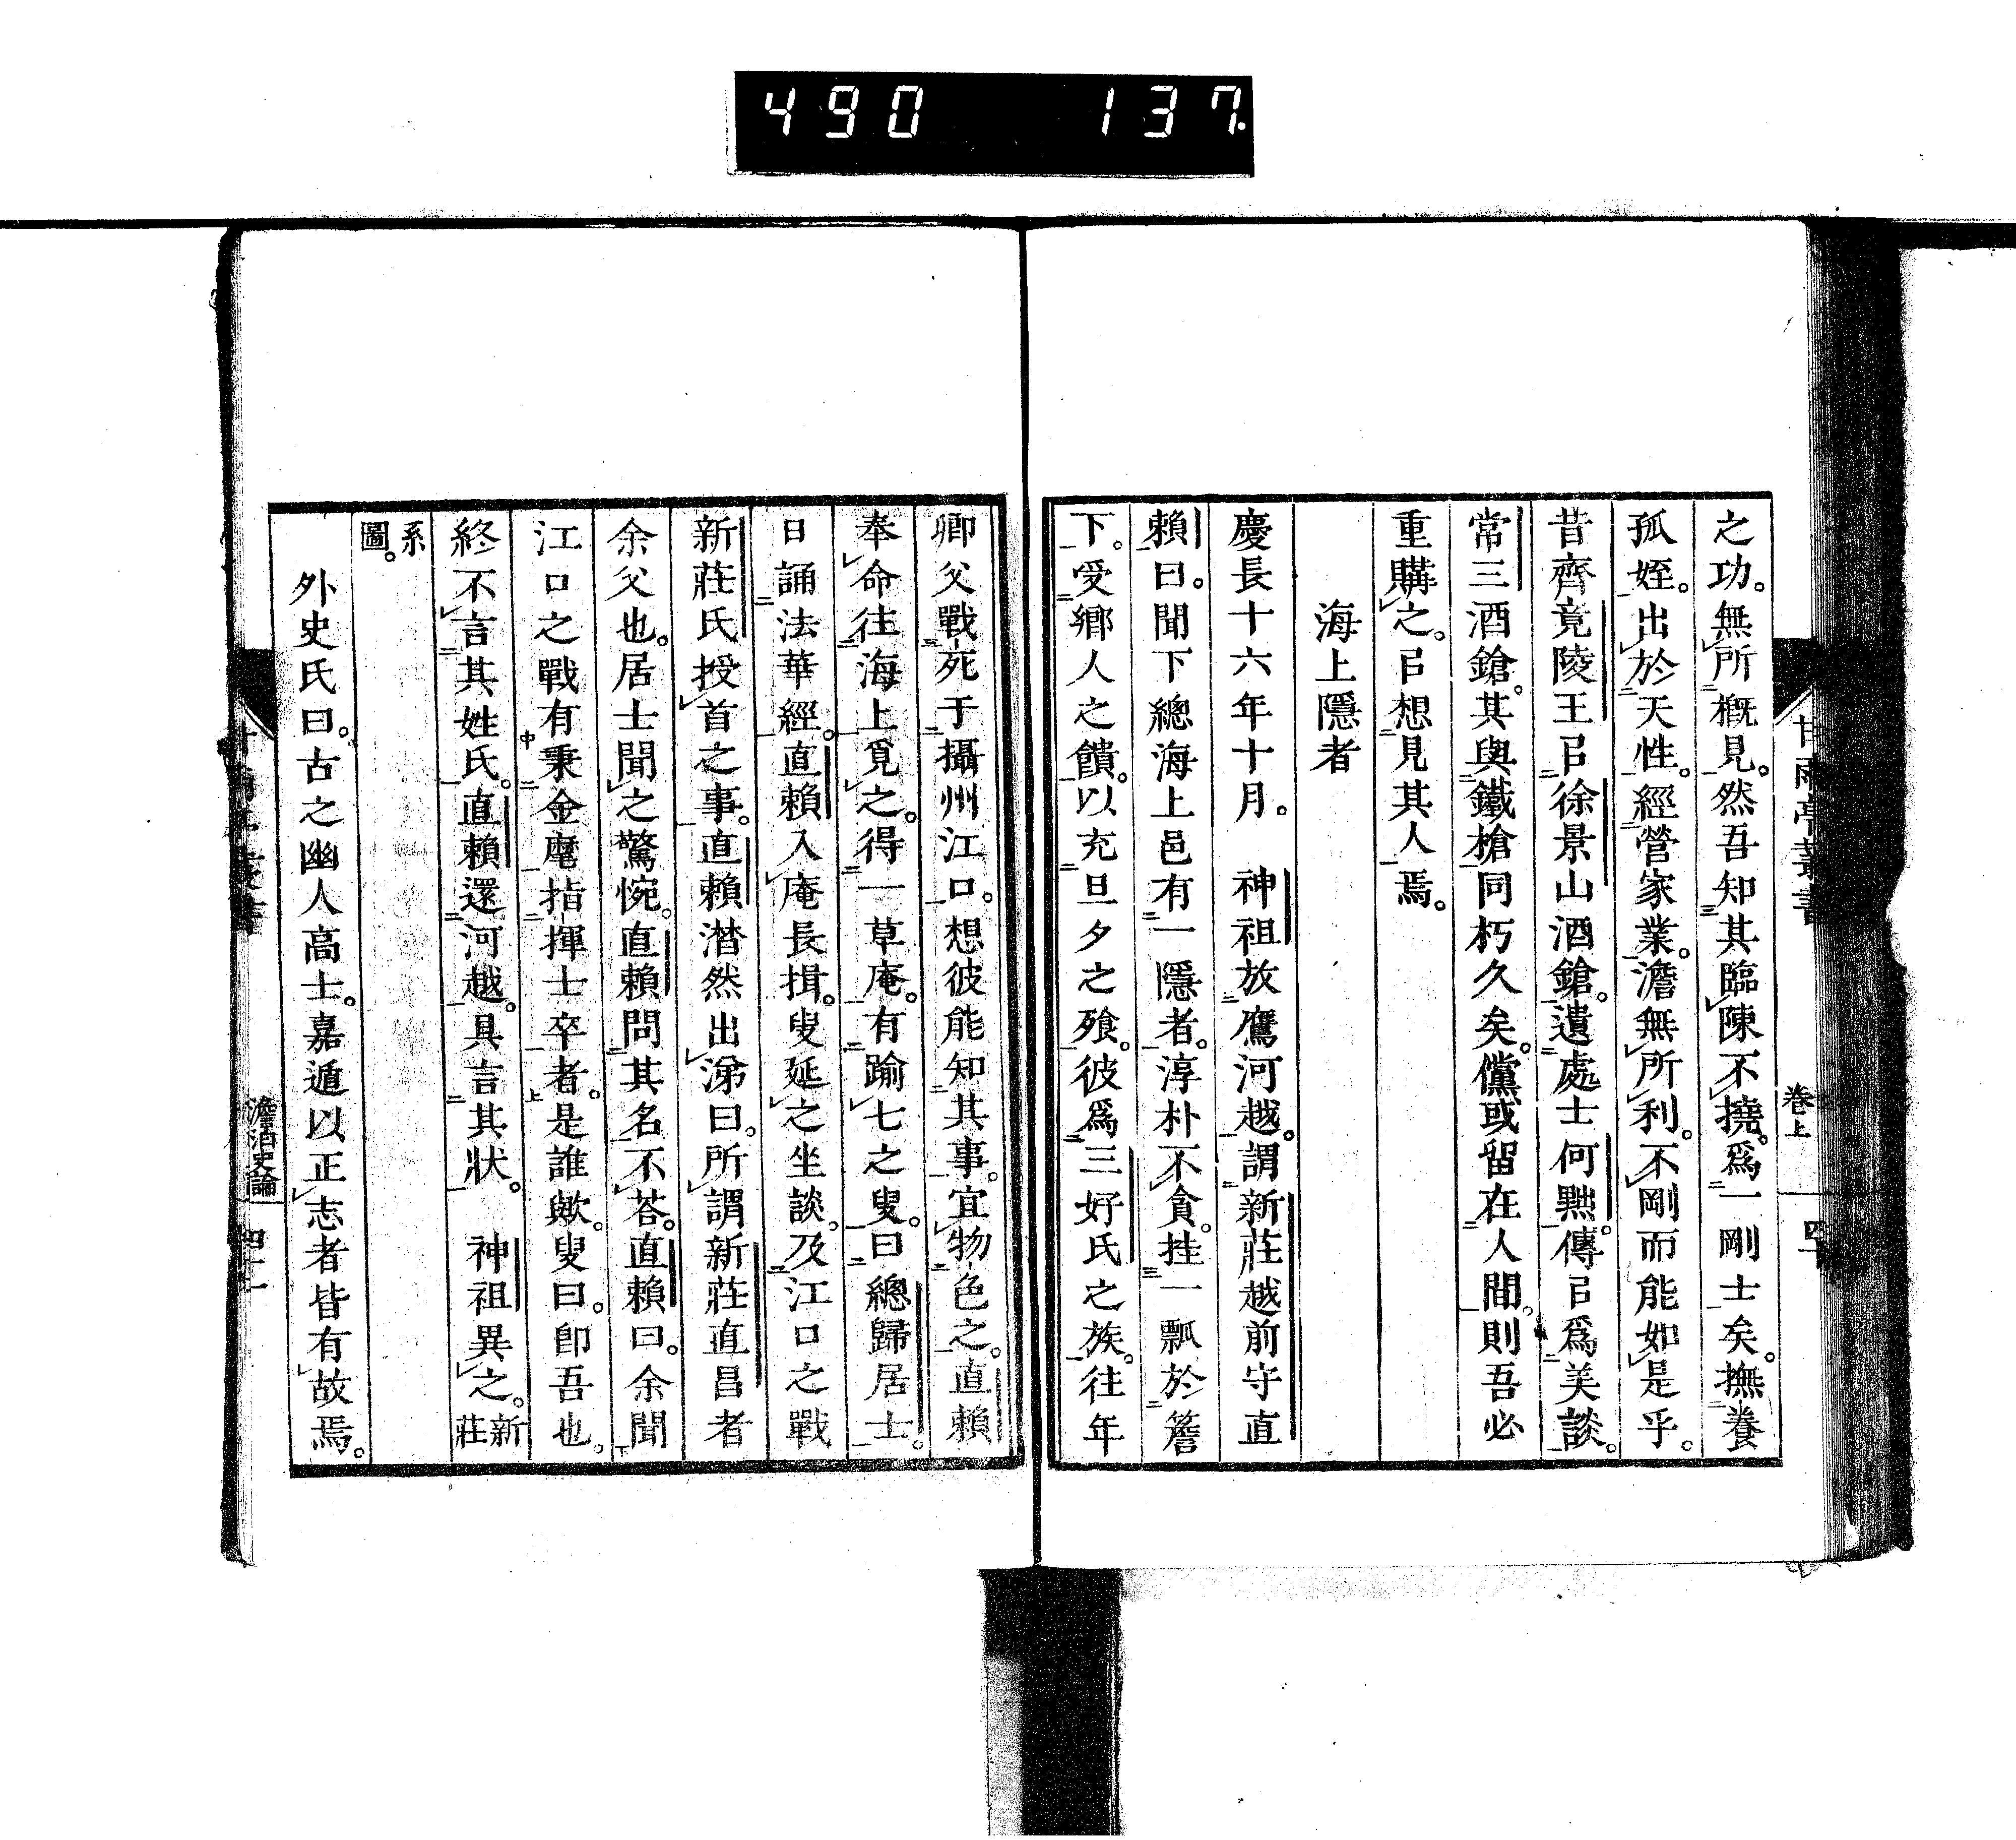 490 137.
甘雨亭叢書
卷上
之功。無所概見。然吾知其臨陳不撓。爲一剛士矣。撫養
孤姪。出於天性。經營家業。澹無所利。不剛而能如是乎。
昔齊竟陵王㠯徐景山酒鎗。遺處士何㸃。傳㠯爲美談。
常三酒鎗。其與鐵槍同朽久矣。儻或留在人間。則吾必
重購之。㠯想見其人焉。
海上隱者
慶長十六年十月。 神祖放鷹河越。謂新莊越前守直
賴曰。聞下總海上邑有一隱者。淳朴不貪。挂一瓢於簷
下。受鄉人之饋。以充旦夕之飱。彼爲三好氏之族。往年
卿父戰死于攝州江口。想彼能知其事。宜物色之。直賴
奉命往海上覓之。得一草庵。有踰七之叟。曰總歸居士。
日誦法華經。直賴入庵長揖。叟延之坐談。及江口之戰
新莊氏授首之事。直賴潸然出涕曰。所謂新莊直昌者
余父也。居士聞之驚惋。直賴問其名。不荅。直賴曰。余聞
江口之戰有秉金麾指揮士卒者。是誰歟。叟曰。卽吾也。
終不言其姓氏。直賴還河越。具言其狀。 神祖異之。新莊
系圖。
外史氏曰。古之幽人高士。嘉遁以正志者皆有故焉。
澹泊史論